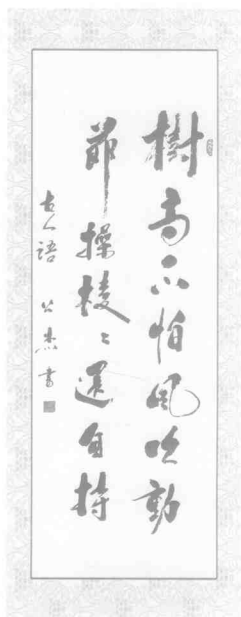 樹高不怕風吹動
節操棱々還自持
古人語 公杰書